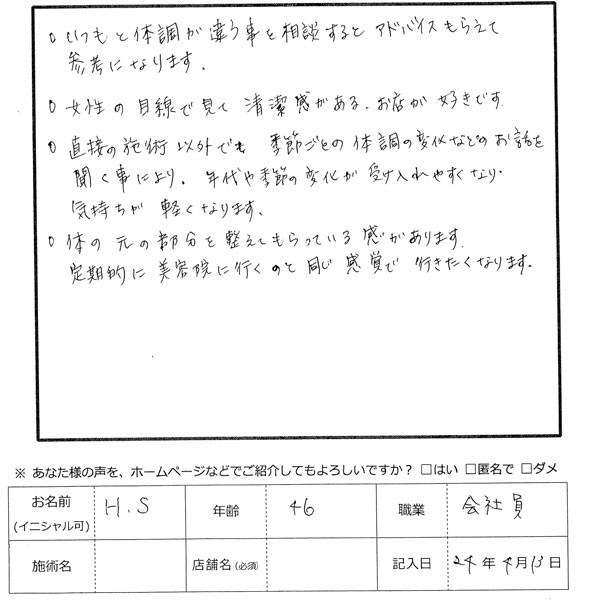 ○ いつもと体調が違う事を相談するとアドバイスもらえて
参考になります。
○ 女性の目線で見て清潔感がある、お店が好きです
○ 直接の施術以外でも季節ごとの体調の変化などのお話を
聞く事により、年代や季節の変化が受け入れやすくなり、
気持ちが軽くなります。
○ 体の元の部分を整えてもらっている感があります。
定期的に美容院に行くのと同じ感覚で行きたくなります。
※ あなた様の声を、ホームページなどでご紹介してもよろしいですか? □はい □匿名で □ダメ
お名前 (イニシャル可) H.S 年齢 46 職業 会社員
施術名 店舗名(必須) 記入日 24年4月13日